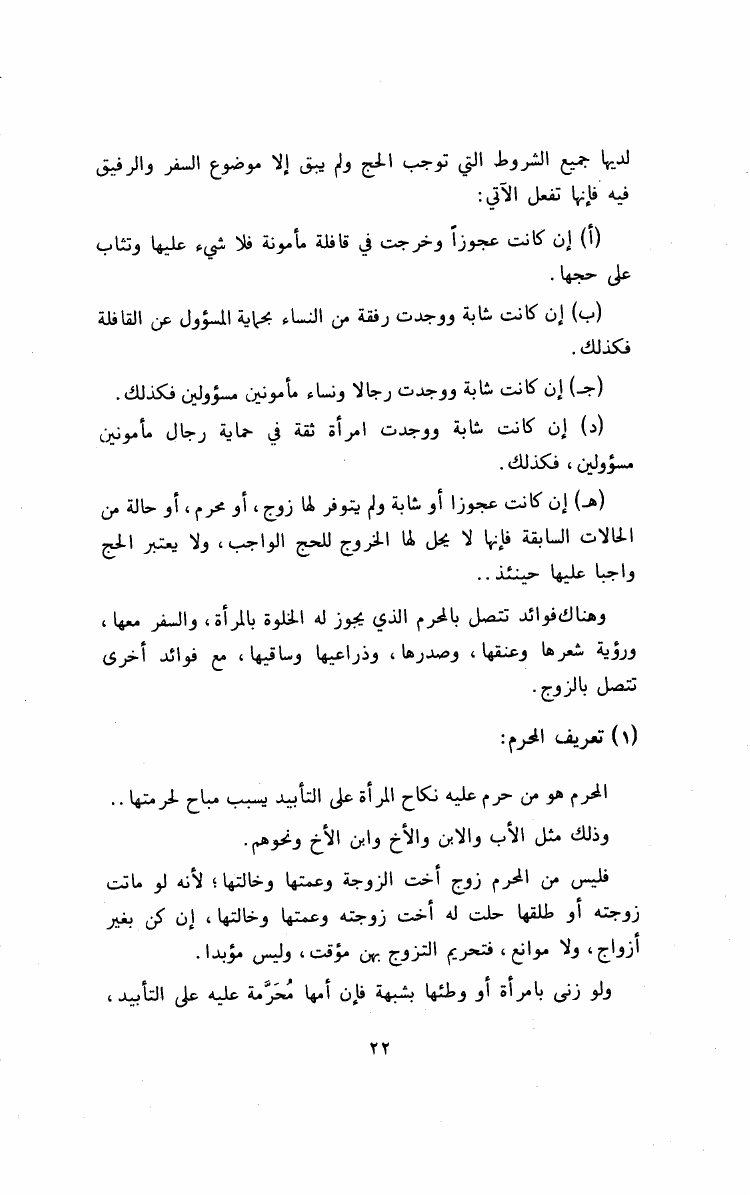 لديها جميع الشروط التي توجب الحج ولم يبق إلا موضوع السفر والرفيق
فيه فإنها تفعل الآتي:
(أ) إن كانت عجوزاً وخرجت في قافلة مأمونة فلا شيء عليها وتثاب
على حجها.
(ب) إن كانت شابة ووجدت رفقة من النساء بحماية المسؤول عن القافلة
فكذلك.
(جـ) إن كانت شابة ووجدت رجالا ونساء مأمونين مسؤولين فكذلك.
(د) إن كانت شابة ووجدت امرأة ثقة في حماية رجال مأمونين
مسؤولين، فكذلك.
(هـ) إن كانت عجوزا أو شابة ولم يتوفر لها زوج، أو محرم، أو حالة من
الحالات السابقة فإنها لا يحل لها الخروج للحج الواجب، ولا يعتبر الحج
واجبا عليها حينئذ..
وهناك فوائد تتصل بالمحرم الذي يجوز له الخلوة بالمرأة، والسفر معها،
ورؤية شعرها وعنقها، وصدرها، وذراعيها وساقيها، مع فوائد أخرى
تتصل بالزوج.
(١) تعريف المحرم:
المحرم هو من حرم عليه نكاح المرأة على التأبيد يسبب مباح لحرمتها..
وذلك مثل الأب والابن والأخ وابن الأخ ونحوهم.
فليس من المحرم زوج أخت الزوجة وعمتها وخالتها؛ لأنه لو ماتت
زوجته أو طلقها حلت له أخت زوجته وعمتها وخالتها، إن كن بغير
أزواج، ولا موانع، فتحريم التزوج بهن مؤقت، وليس مؤبدا.
ولو زنى بامرأة أو وطئها بشبهة فإن أمها مُحَرَّمة عليه على التأبيد،
٢٢